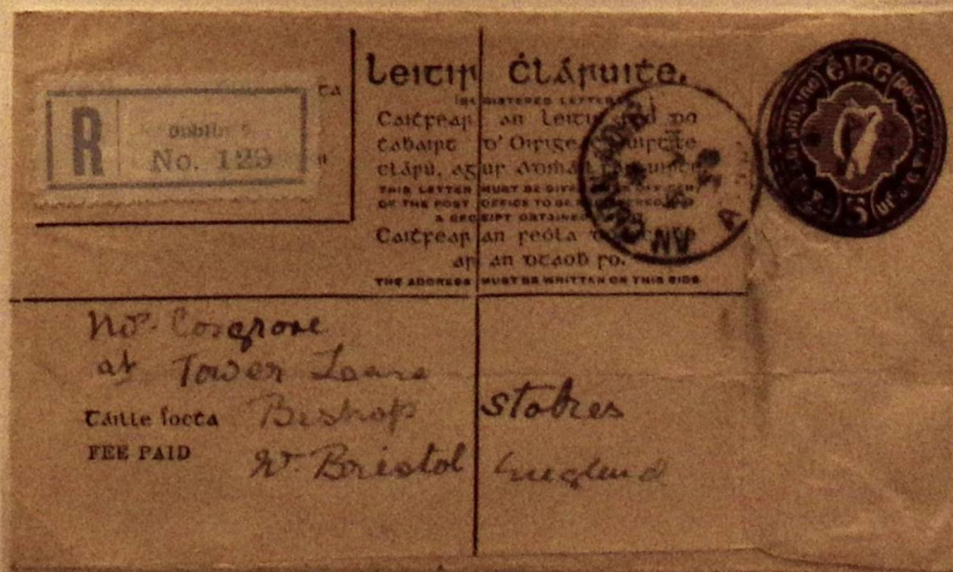 Leitir Ċláruiṫe.
(REGISTERED LETTER)
Caiṫfear an Leitir seo do
ṫaḃairt d'Oifigeaċ
clárú, agus Aḋṁáil
THIS LETTER MUST BE GIVEN TO AN OFFICER
OF THE POST OFFICE TO BE REGISTERED AND
A RECEIPT OBTAINED
Caiṫfear an seóla
ar an dtaoḃ so.
THE ADDRESS MUST BE WRITTEN ON THIS SIDE
R
Dublin
No. 129
ÉIRE
5
AN
A
Cosgrove
at Tower Lane
Bishop Stokes
Bristol England
Táille íocṫa
FEE PAID